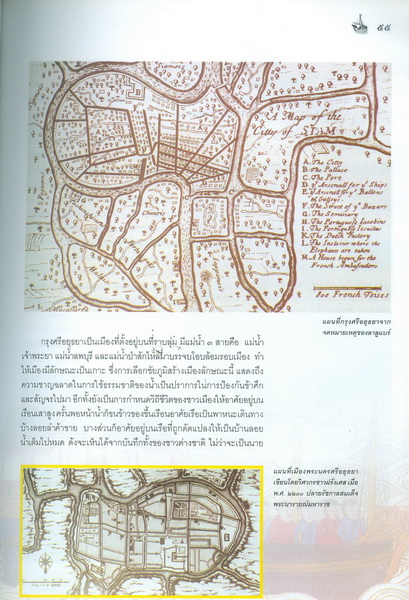 ๕๕
A Map of the
Citty of SIAM
A. The Citty
B. The Pallace
C. The Port
D. Yᵉ Arsenall for yᵉ Ships
E. Yᵉ Arsenall for yᵉ Ballons
& Galleys
F. The Street of yᵉ Bazars
G. The Seminary
H. The Portugueze Iacobins
I. The Portugueze Iesuites
K. The Dutch Factory
L. The Inclosure where the
Elephans are taken
M. A House begun for the
French Ambassadors
300 French Toises
แผนที่กรุงศรีอยุธยาจาก
จดหมายเหตุของลาลูแบร์
กรุงศรีอยุธยาเป็นเมืองที่ตั้งอยู่บนที่ราบลุ่ม มีแม่น้ำ ๓ สายคือ แม่น้ำ
เจ้าพระยา แม่น้ำลพบุรี และแม่น้ำป่าสักไหลมาบรรจบโอบล้อมรอบเมือง ทำ
ให้เมืองมีลักษณะเป็นเกาะ ซึ่งการเลือกชัยภูมิสร้างเมืองลักษณะนี้ แสดงถึง
ความชาญฉลาดในการใช้ธรรมชาติของน้ำเป็นปราการในการป้องกันข้าศึก
และสัญจรไปมา อีกทั้งยังเป็นการกำหนดวิถีชีวิตของชาวเมืองให้อาศัยอยู่บน
เรือนเสาสูง ครั้นพอหน้าน้ำก็ขนข้าวของขึ้นเรือนอาศัยเรือเป็นพาหนะเดินทาง
บ้างลอยลำค้าขาย บางส่วนก็อาศัยอยู่บนเรือที่ถูกดัดแปลงให้เป็นบ้านลอย
น้ำเต็มไปหมด ดังจะเห็นได้จากบันทึกทั้งของชาวต่างชาติ ไม่ว่าจะเป็นนาย
แผนที่เมืองพระนครศรีอยุธยา
เขียนโดยวิศวกรชาวฝรั่งเศส เมื่อ
พ.ศ. ๒๒๓๐ ปลายรัชกาลสมเด็จ
พระนารายณ์มหาราช